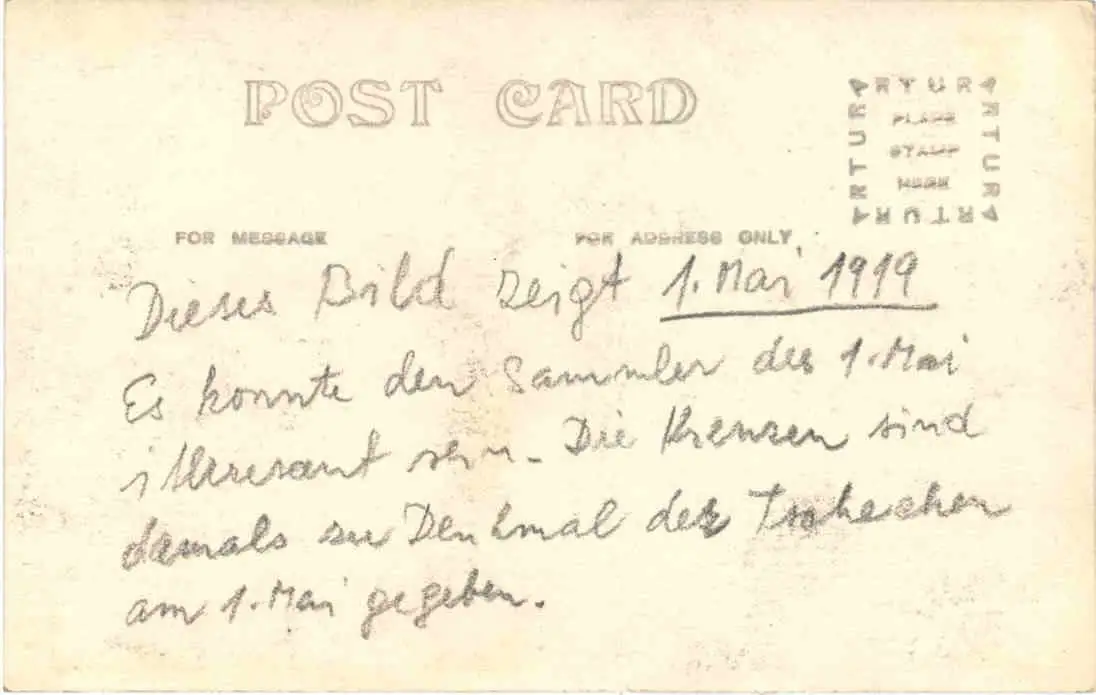 POST CARD
ARTURA
ARTURA
ARTURA
ARTURA
PLACE
STAMP
HERE
FOR MESSAGE
FOR ADDRESS ONLY
Dieses Bild zeigt 1. Mai 1919
Es konnte den Sammler des 1. Mai
interesant sein. Die Krenzen sind
damals zu Denkmal der Tschechen
am 1. Mai gegeben.